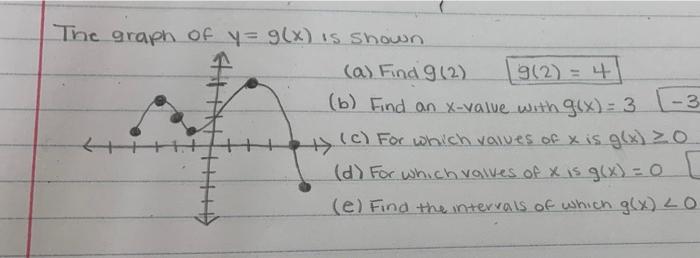 The graph of y = g(x) is shown
(a) Find g(2) g(2) = 4
(b) Find an x-value with g(x) = 3 -3
(c) For which values of x is g(x) ≥ 0
(d) For which values of x is g(x) = 0
(e) Find the intervals of which g(x) < 0